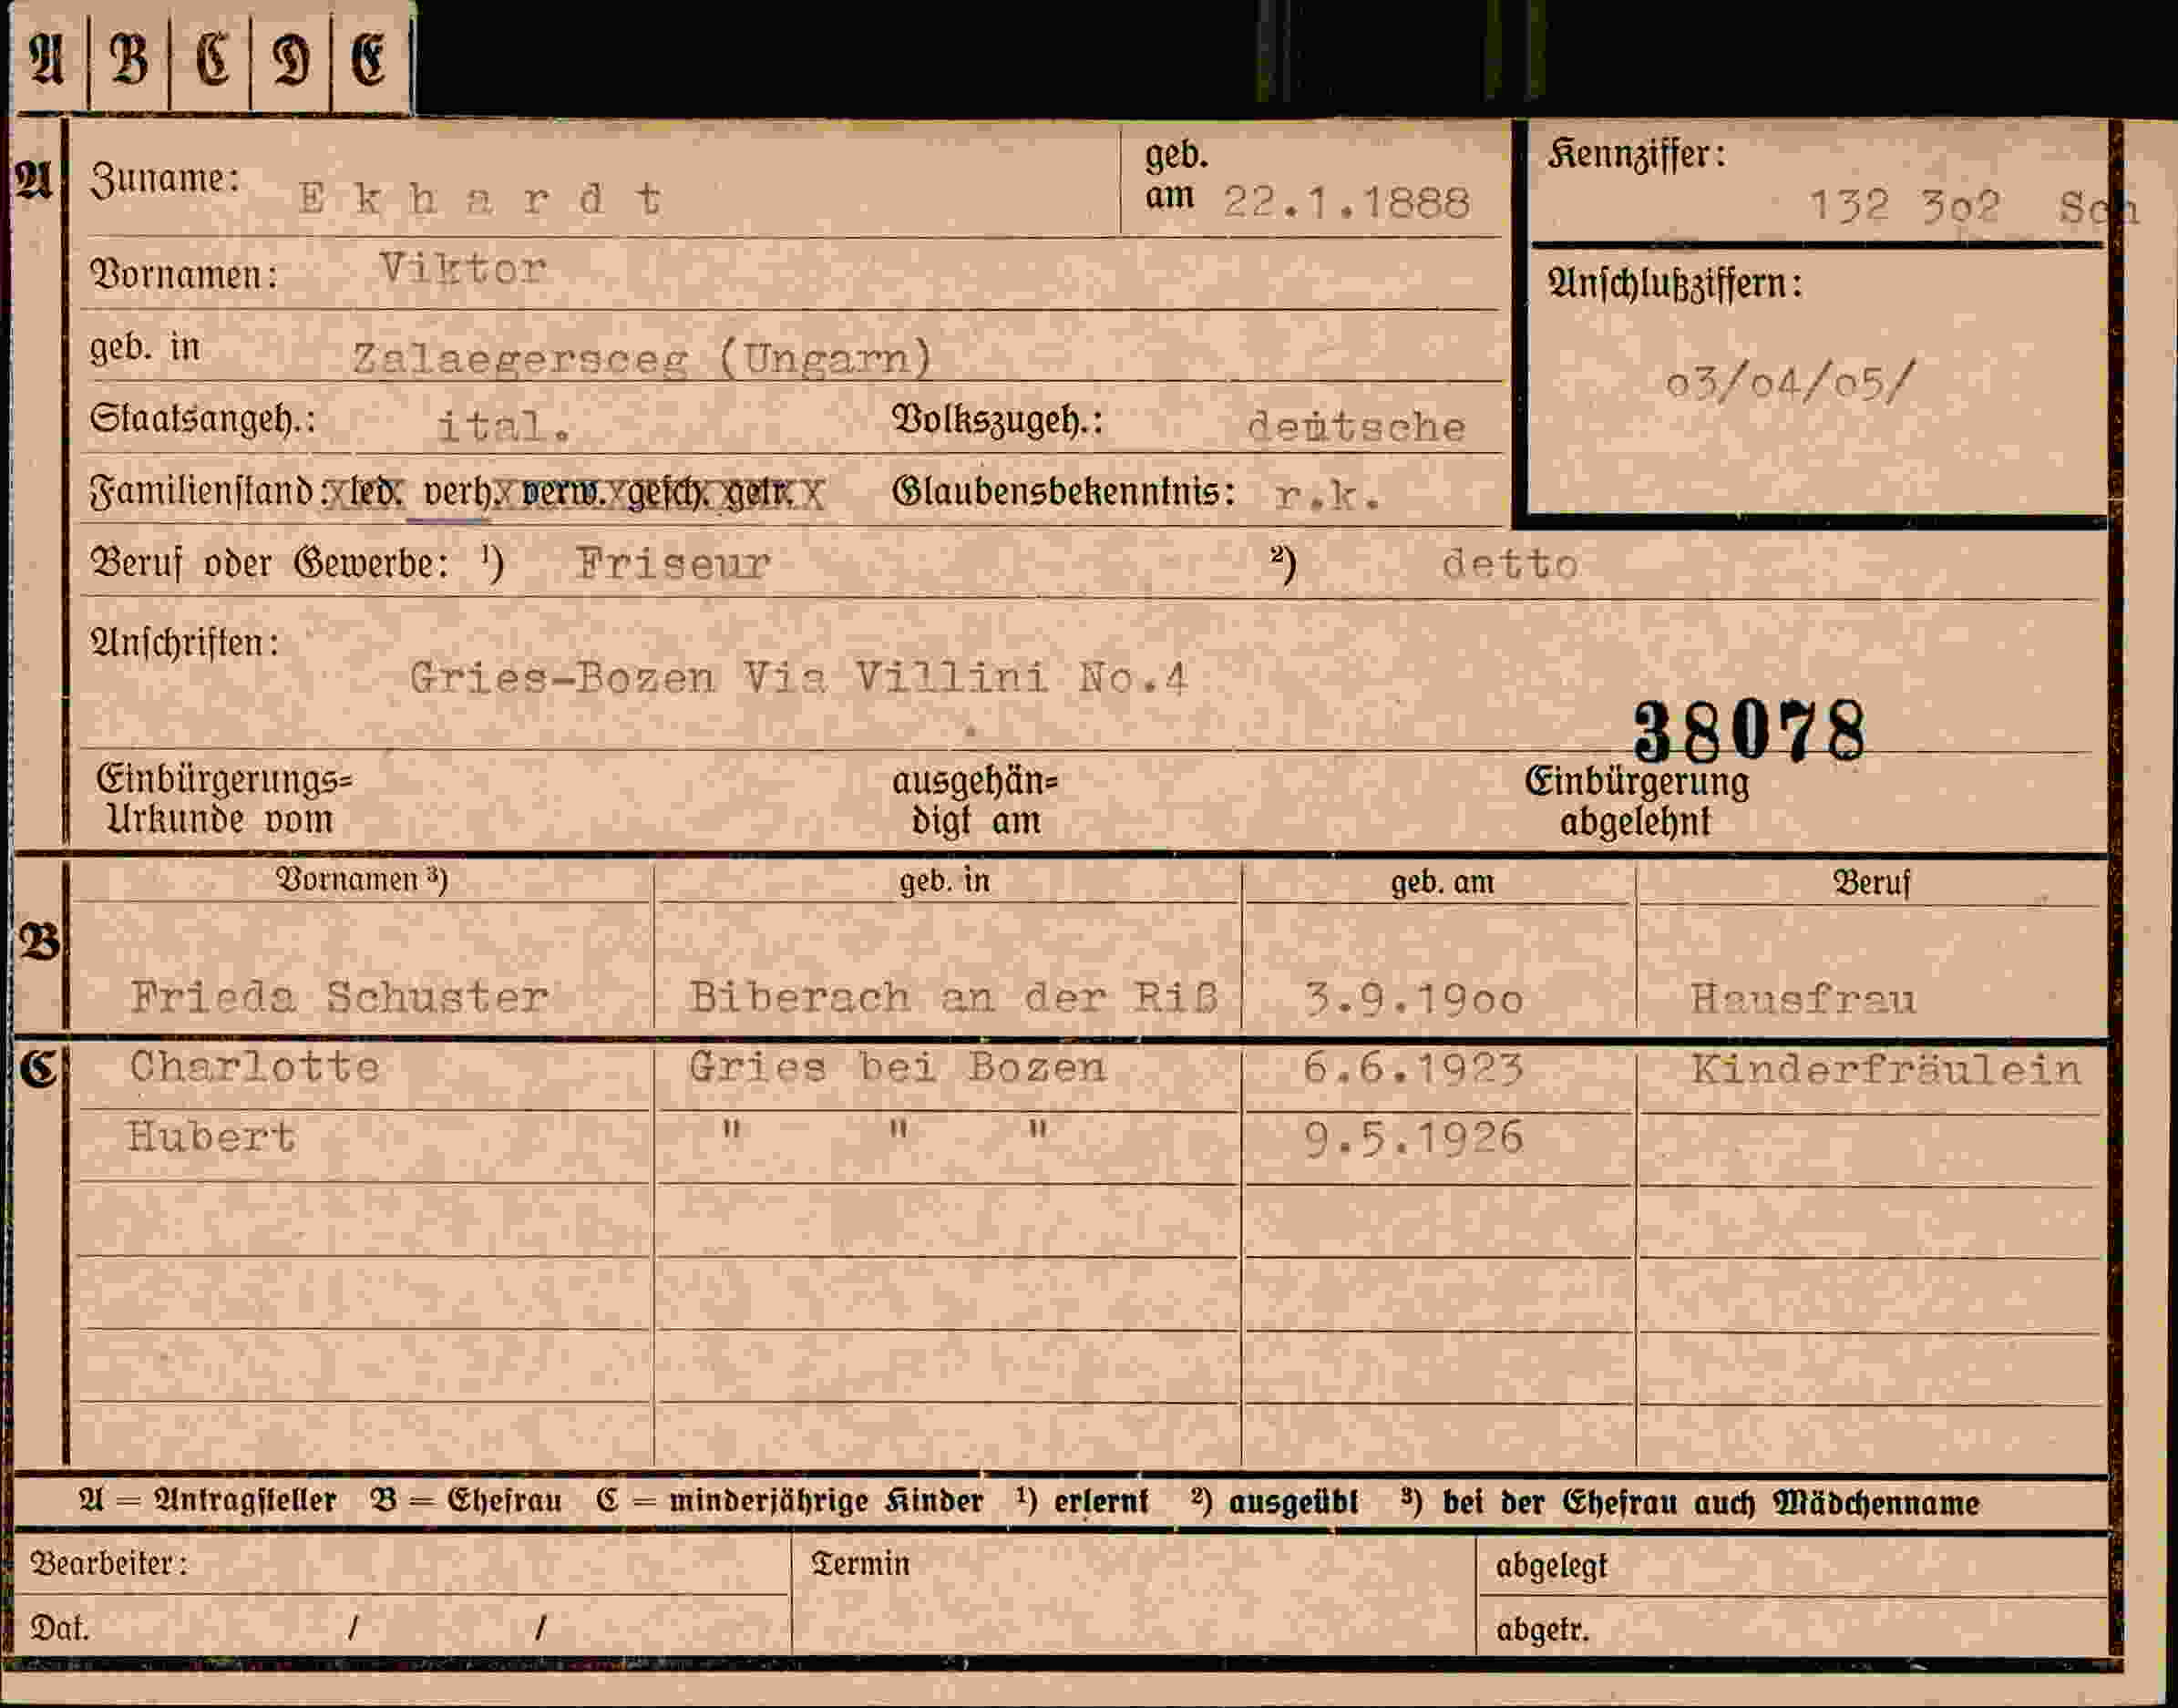 A B C D E
A Zuname: Ekhardt geb. am 22.1.1888 Kennziffer: 132 3o2 Sch
Vornamen: Viktor
Anschlußziffern:
geb. in Zalaegersceg (Ungarn)
o3/o4/o5/
Staatsangeh.: ital. Volkszugeh.: deutsche
Familienstand: led. verh. verw. gesch. getr. Glaubensbekenntnis: r.k.
Beruf oder Gewerbe: ¹) Friseur ²) detto
Anschriften:
Gries-Bozen Via Villini No.4
38078
Einbürgerungs= ausgehän= Einbürgerung
Urkunde vom digt am abgelehnt
Vornamen ³) geb. in geb. am Beruf
B
Frieda Schuster Biberach an der Riß 3.9.19oo Hausfrau
C Charlotte Gries bei Bozen 6.6.1923 Kinderfräulein
Hubert " " " 9.5.1926
A = Antragsteller B = Ehefrau C = minderjährige Kinder ¹) erlernt ²) ausgeübt ³) bei der Ehefrau auch Mädchenname
Bearbeiter: Termin abgelegt
Dat. / / abgetr.